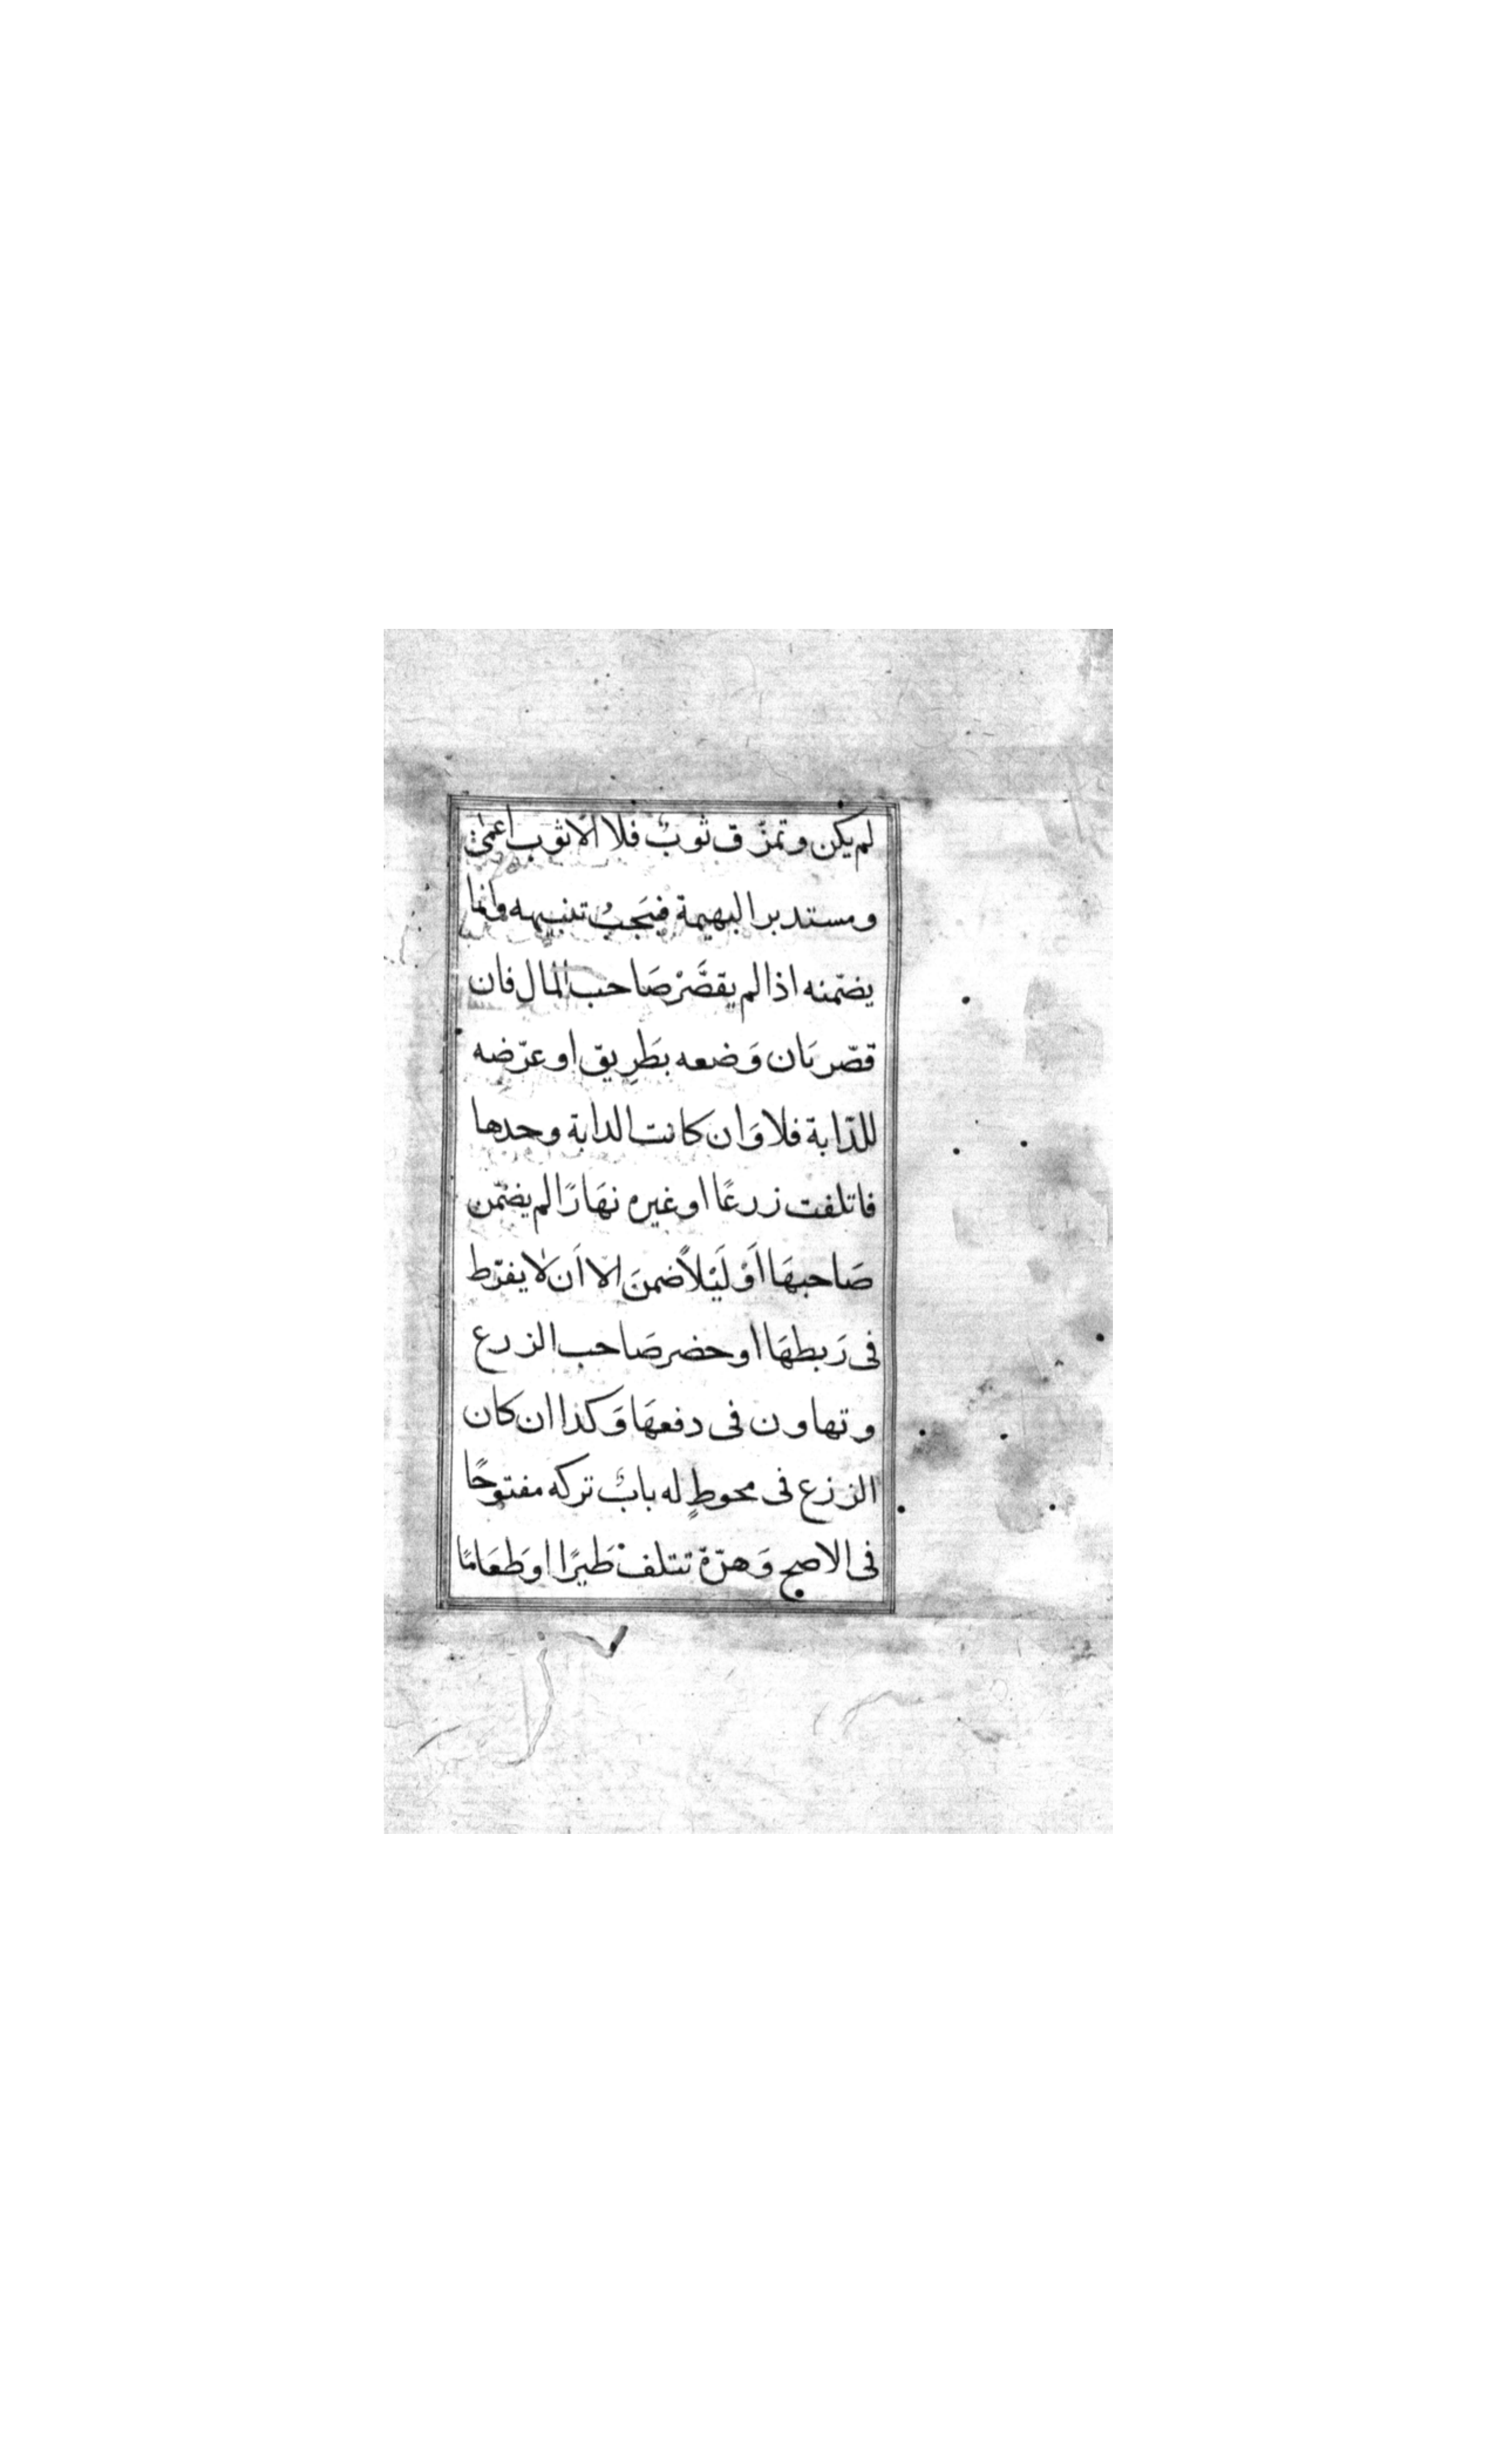 لم يكن وتمزّق ثوبٌ فلا الا ثوب اعمى
ومستدبر البهيمة فيَجبُ تنبيهه وانما
يضّمنه اذا لم يقصَّرْ صَاحب المال فان
قصّر بَان وَضعه بطَرِيق او عرّضه
للدّابة فلا وَان كانت الدابة وحدها
فاتلفت زرعًا او غيره نهَارًا لم يضّمن
صَاحبهَا اَوْ لَيْلاً ضمنَ الا اَن لا يفرّط
فى رَبطهَا او حضر صَاحب الزرع
وتهاون فى دفعهَا وَكذا ان كان
الزرع فى محوطٍ له بابٌ تركه مفتوحًا
فى الاصح وَهرّة تتلف طَيرًا اوطَعَامًا